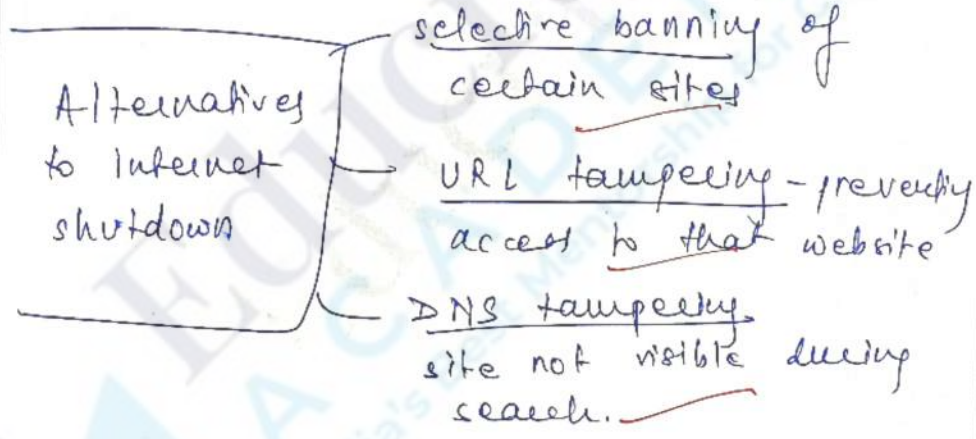 Alternatives
to Internet
shutdown
selective banning of
certain sites
URL tampering - preventing
access to that website
DNS tampering
site not visible during
search.